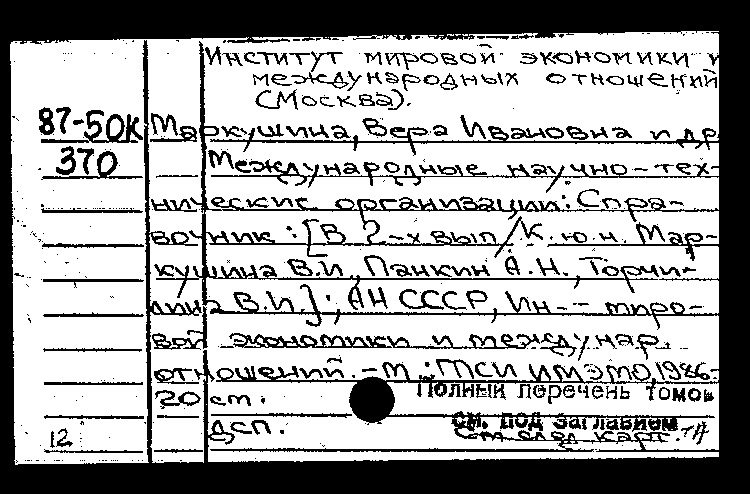 Институт мировой экономики и
международных отношений
(Москва).
87-50К Маркушина, Вера Ивановна и др.
370 Международные научно-тех-
нические организации: Спра-
вочник: [В 2-х вып / К.ю.н. Мар-
кушина В.И., Панкин А.Н., Торчи-
лина В.И.]; АН СССР, Ин-- миро-
вой экономики и междунар.
отношений. - М.: ТСИ ИМЭМО, 1986-
20 см.
Полный перечень томов
см. под заглавием
12 ДСП.
См след карт.